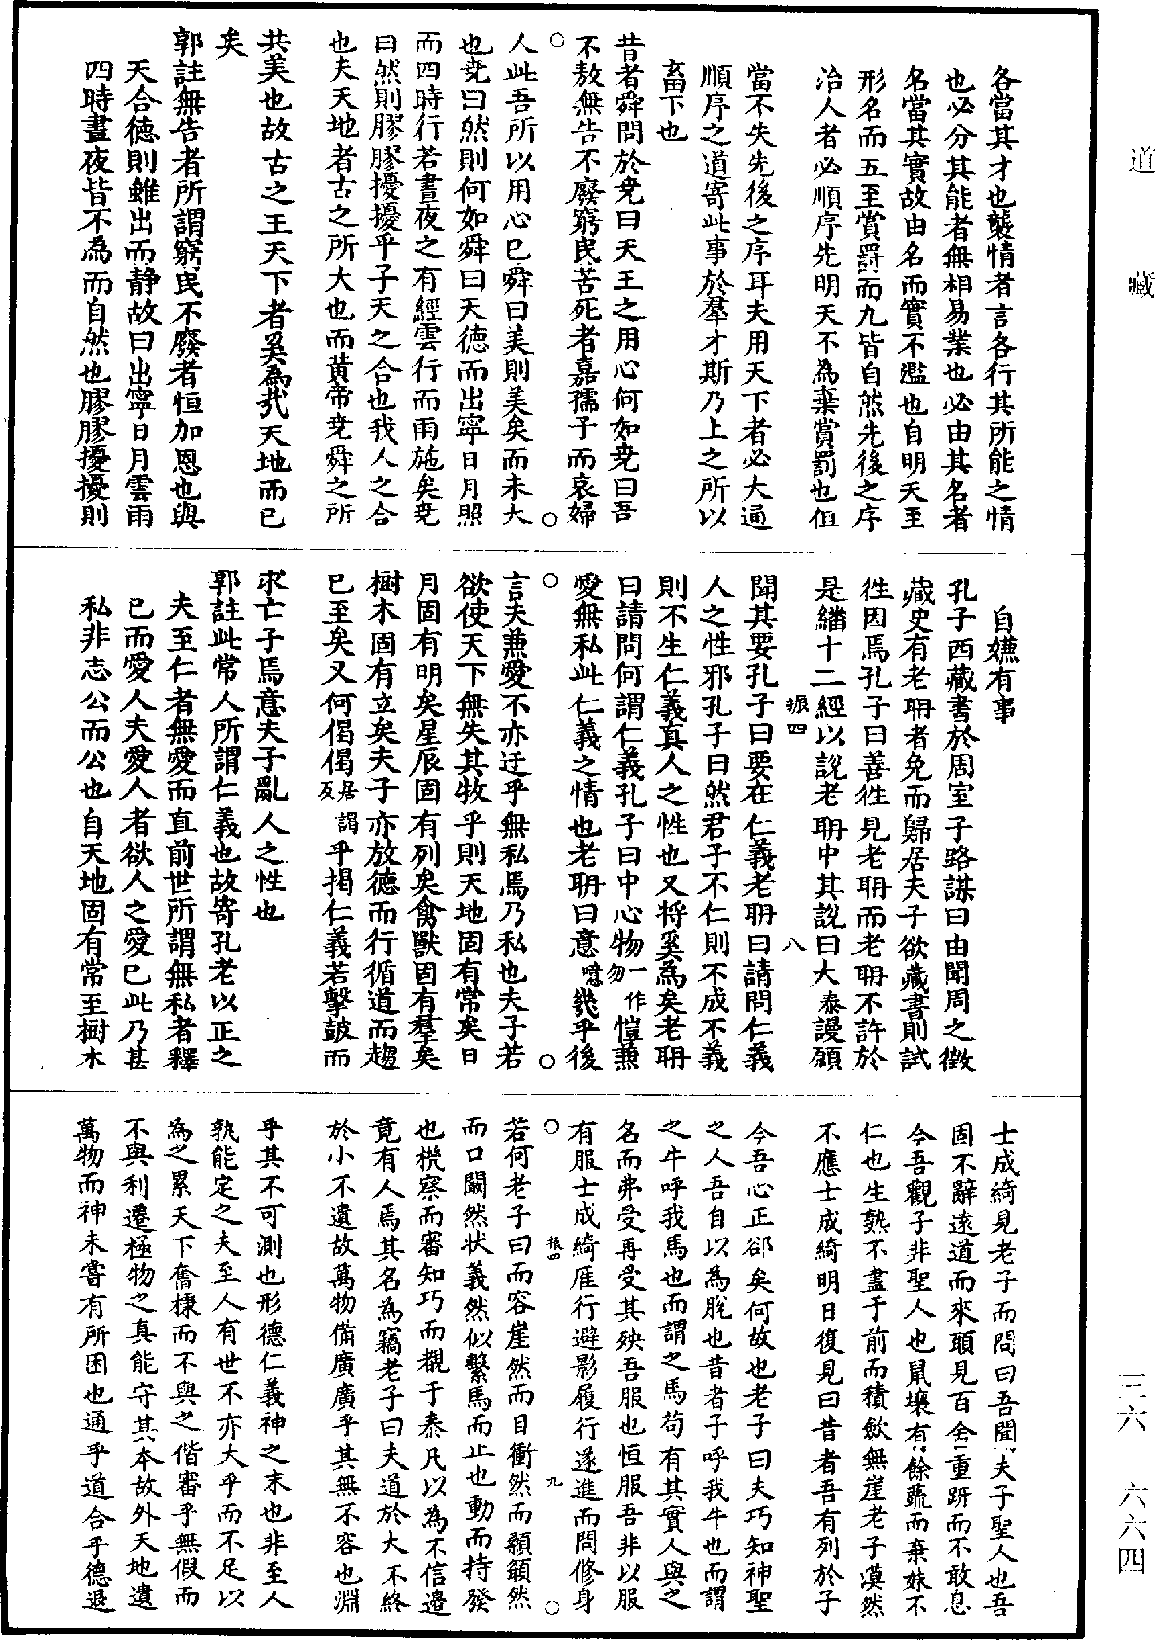 道藏
三六　六六四
各當其才也襲情者言各行其所能之情
也必分其能者無相易業也必由其名者
名當其實故由名而實不濫也自明天至
形名而五至賞罰而九皆自然先後之序
治人者必順序先明天不為棄賞罰也但
當不失先後之序耳夫用天下者必大通
順序之道寄此事於羣才斯乃上之所以
畜下也
昔者舜問於堯曰天王之用心何如堯曰吾
不敖無告不廢窮民苦死者嘉孺子而哀婦
人此吾所以用心已舜曰美則美矣而未大
也堯曰然則何如舜曰天德而出寧日月照
而四時行若晝夜之有經雲行而雨施矣堯
曰然則膠膠擾擾乎子天之合也我人之合
也夫天地者古之所大也而黃帝堯舜之所
共美也故古之王天下者奚為哉天地而已
矣
郭註無告者所謂窮民不廢者恒加恩也與
天合德則雖出而静故曰出寧日月雲雨
四時晝夜皆不為而自然也膠膠擾擾則
自嫌有事
孔子西藏書於周室子路謀曰由聞周之徵
藏史有老聃者免而歸居夫子欲藏書則試
往因焉孔子曰善往見老聃而老聃不許於
是繙十二經以說老聃中其說曰大泰謾願
振四　八
聞其要孔子曰要在仁義老聃曰請問仁義
人之性邪孔子曰然君子不仁則不成不義
則不生仁義真人之性也又將奚為矣老聃
曰請問何謂仁義孔子曰中心物一作勿愷兼
愛無私此仁義之情也老聃曰意噫幾乎後
言夫兼愛不亦迂乎無私焉乃私也夫子若
欲使天下無失其牧乎則天地固有常矣日
月固有明矣星辰固有列矣禽獸固有羣矣
樹木固有立矣夫子亦放德而行循道而趨
已至矣又何偈偈居謁反乎揭仁義若擊鼓而
求亡子焉意夫子亂人之性也
郭註此常人所謂仁義也故寄孔老以正之
夫至仁者無愛而直前世所謂無私者釋
己而愛人夫愛人者欲人之愛己此乃甚
私非志公而公也自天地固有常至樹木
士成綺見老子而問曰吾聞夫子聖人也吾
固不辭遠道而來願見百舍重趼而不敢息
今吾觀子非聖人也鼠壤有餘蔬而棄妹不
仁也生熟不盡于前而積歛無崖老子漠然
不應士成綺明日復見曰昔者吾有列於子
今吾心正郤矣何故也老子曰夫巧知神聖
之人吾自以為脫也昔者子呼我牛也而謂
之牛呼我馬也而謂之馬苟有其實人與之
名而弗受再受其殃吾服也恒服吾非以服
有服士成綺厓行避影履行遂進而問修身
振四　九
若何老子曰而容崖然而目衝然而顙頯然
而口闞然状義然似繫馬而止也動而持發
也機察而審知巧而覩于泰凡以為不信邊
竟有人焉其名為竊老子曰夫道於大不終
於小不遺故萬物備廣廣乎其無不容也淵
乎其不可測也形德仁義神之末也非至人
孰能定之夫至人有世不亦大乎而不足以
為之累天下奮棅而不與之偕審乎無假而
不與利遷極物之真能守其本故外天地遺
萬物而神未嘗有所困也通乎道合乎德退